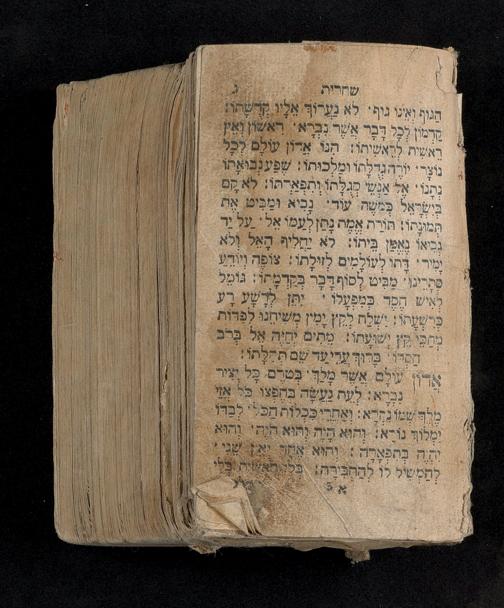 שחרית ג
הַגּוּף וְאֵינוֹ גוּף׳ לֹא נַעֲרוֹךְ אֵלָיו קְדֻשָּׁתוֹ׃
קַדְמוֹן לְכָל דָּבָר אֲשֶׁר נִבְרָא׳ רִאשׁוֹן וְאֵין
רֵאשִׁית לְרֵאשִׁיתוֹ׃ הִנּוֹ אֲדוֹן עוֹלָם לְכָל
נוֹצָר׳ יוֹרֶה גְדֻלָּתוֹ וּמַלְכוּתוֹ׃ שֶׁפַע נְבוּאָתוֹ
נְתָנוֹ׳ אֶל אַנְשֵׁי סְגֻלָּתוֹ וְתִפְאַרְתּוֹ׃ לֹא קָם
בְּיִשְׂרָאֵל כְּמֹשֶׁה עוֹד׳ נָבִיא וּמַבִּיט אֶת
תְּמוּנָתוֹ׃ תּוֹרַת אֱמֶת נָתַן לְעַמּוֹ אֵל׳ עַל יַד
נְבִיאוֹ נֶאֱמַן בֵּיתוֹ׃ לֹא יַחֲלִיף הָאֵל וְלֹא
יָמִיר׳ דָּתוֹ לְעוֹלָמִים לְזוּלָתוֹ׃ צוֹפֶה וְיוֹדֵעַ
סְתָרֵינוּ׳ מַבִּיט לְסוֹף דָּבָר בְּקַדְמָתוֹ׃ גּוֹמֵל
לְאִישׁ חֶסֶד כְּמִפְעָלוֹ׳ יִתֵּן לְרָשָׁע רָע
כְּרִשְׁעָתוֹ׃ יִשְׁלַח לְקֵץ יָמִין מְשִׁיחֵנוּ לִפְדּוֹת
מְחַכֵּי קֵץ יְשׁוּעָתוֹ׃ מֵתִים יְחַיֶּה אֵל בְּרֹב
חַסְדּוֹ׳ בָּרוּךְ עֲדֵי עַד שֵׁם תְּהִלָּתוֹ׃
אֲדוֹן עוֹלָם אֲשֶׁר מָלַךְ׳ בְּטֶרֶם כָּל יְצִיר
נִבְרָא׃ לְעֵת נַעֲשָׂה בְחֶפְצוֹ כֹּל אֲזַי
מֶלֶךְ שְׁמוֹ נִקְרָא׃ וְאַחֲרֵי כִּכְלוֹת הַכֹּל׳ לְבַדּוֹ
יִמְלוֹךְ נוֹרָא׃ וְהוּא הָיָה וְהוּא הֹוֶה׳ וְהוּא
יִהְיֶה בְּתִפְאָרָה׃ וְהוּא אֶחָד וְאֵין שֵׁנִי׳
לְהַמְשִׁיל לוֹ לְהַחְבִּירָה׃ בְּלִי רֵאשִׁית בְּלִי
א 3